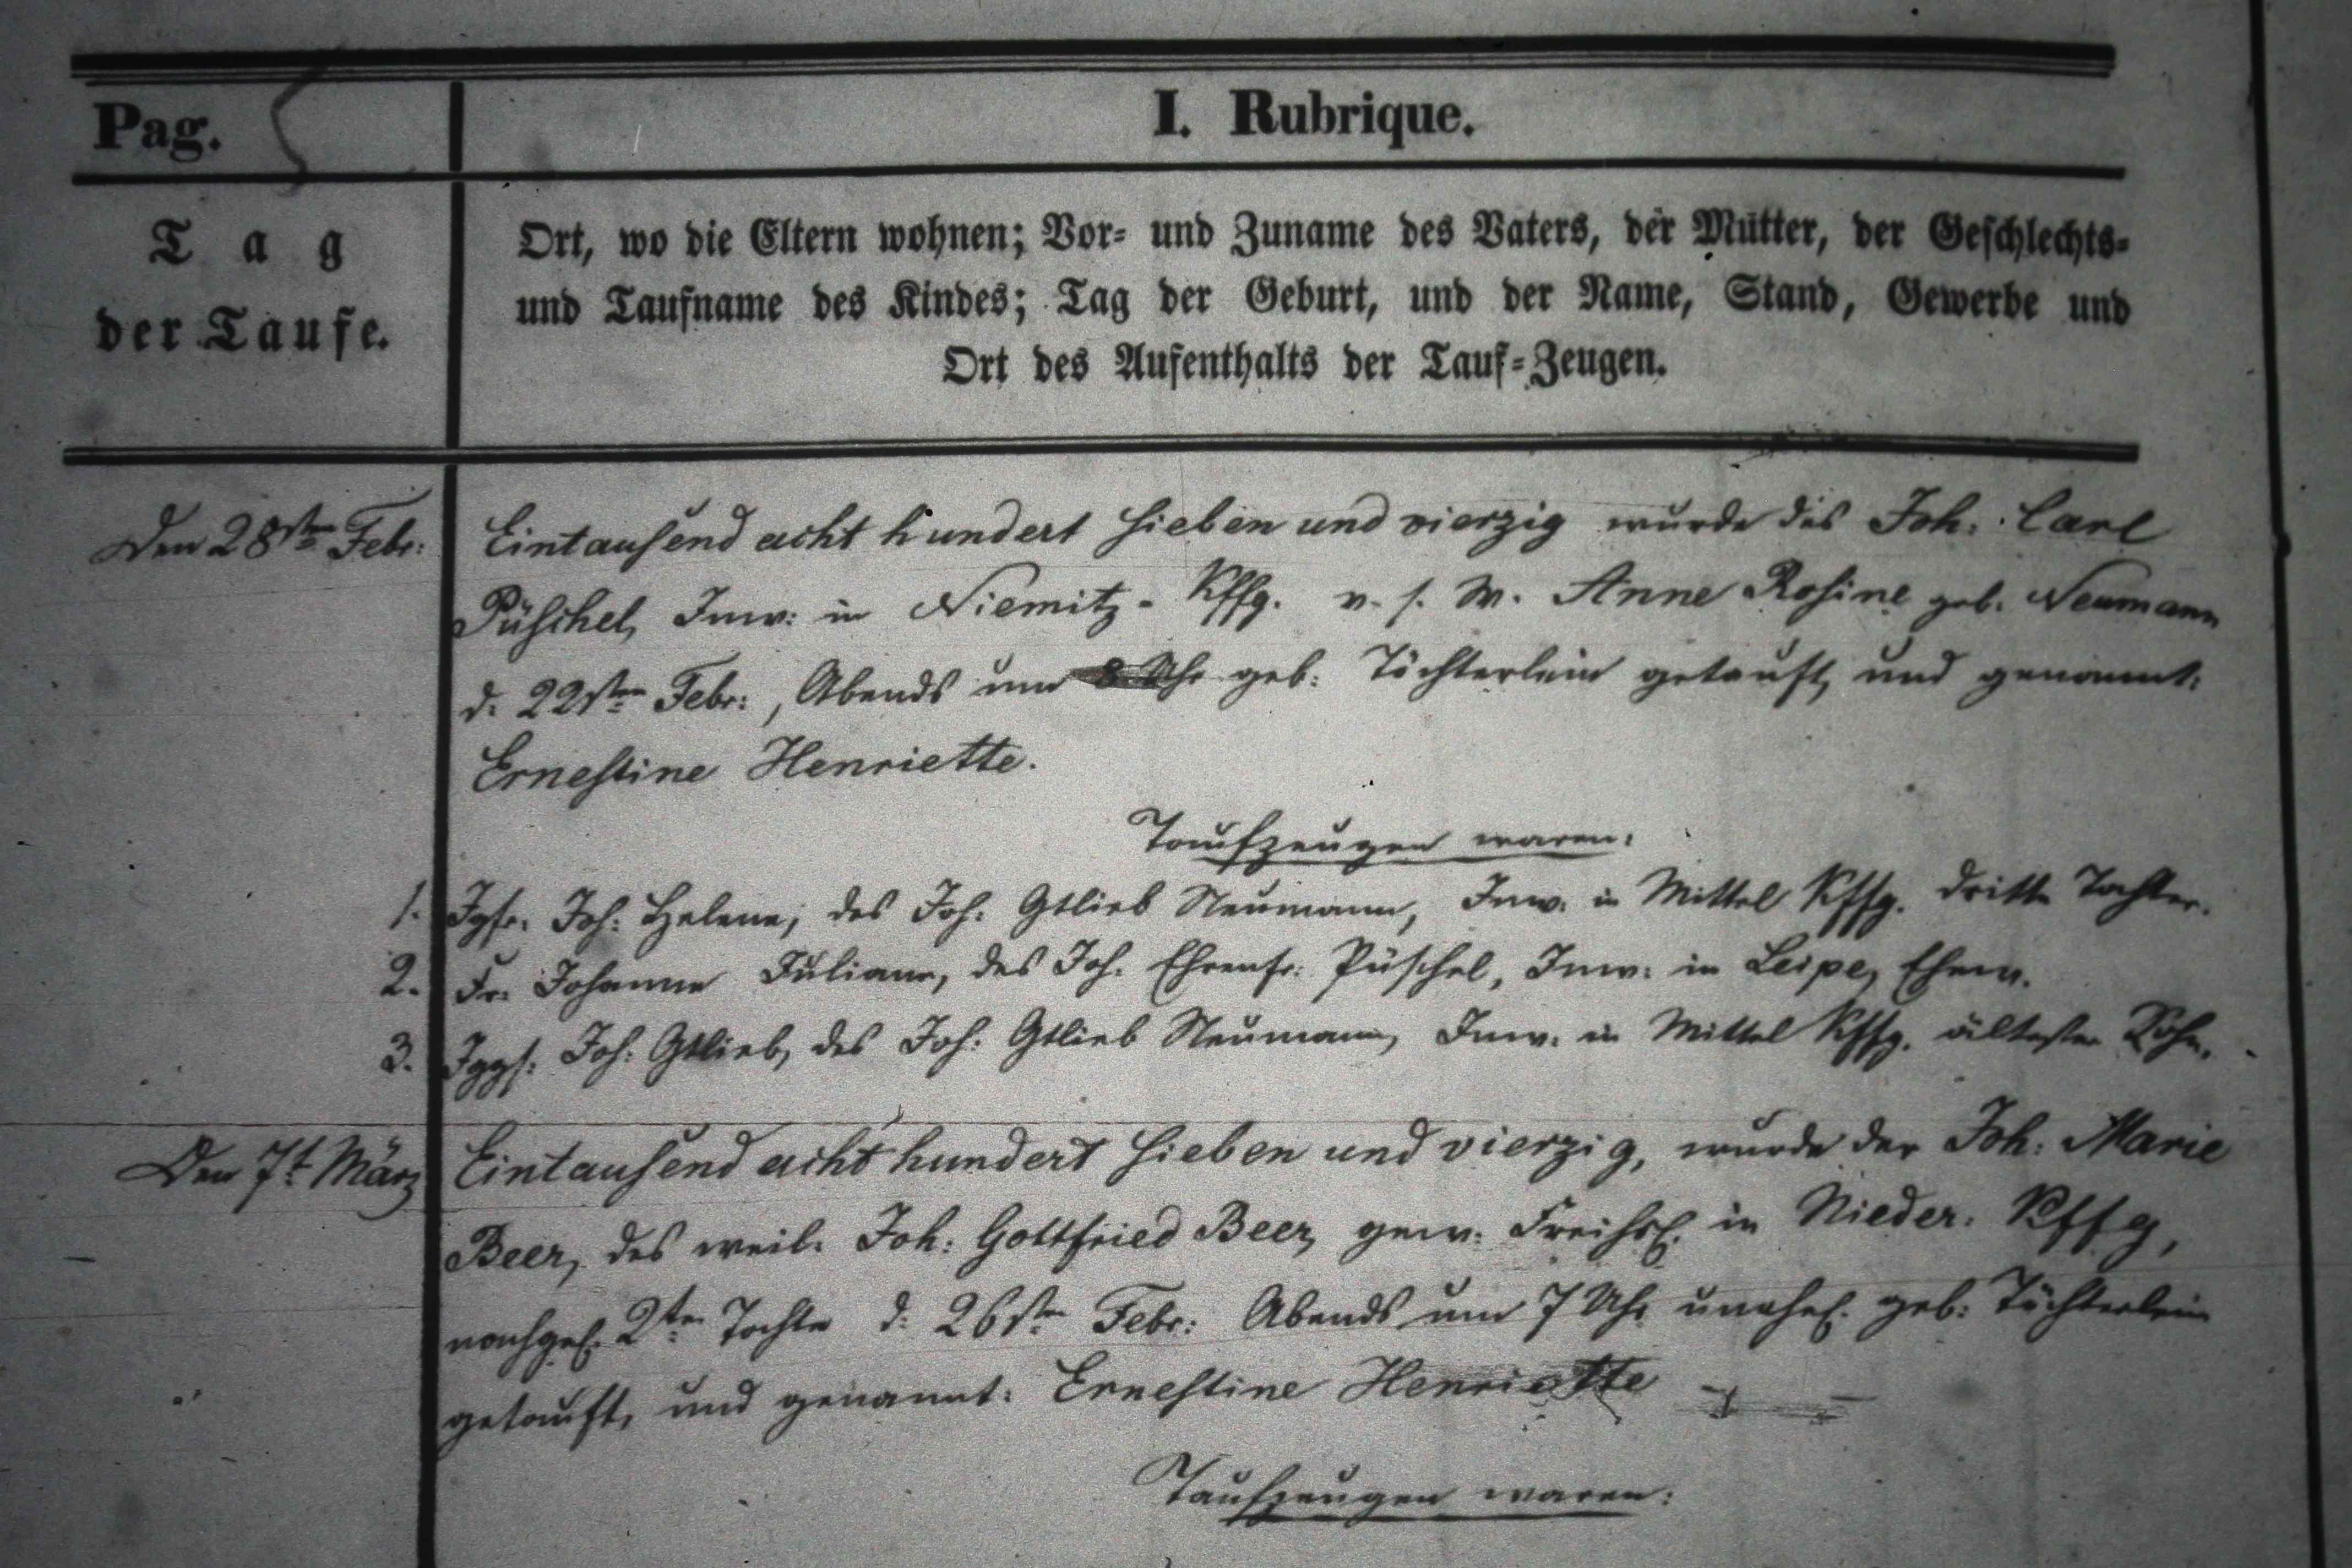 Pag.
I. Rubrique.
Tag
der Taufe.
Ort, wo die Eltern wohnen; Vor- und Zuname des Vaters, der Mutter, der Geschlechts-
und Taufname des Kindes; Tag der Geburt, und der Name, Stand, Gewerbe und
Ort des Aufenthalts der Tauf-Zeugen.
Den 28sten Febr: Eintausend acht hundert sieben und vierzig wurde des Joh: Carl
Püschel, Inw: in Niemitz-Kffg. v. s. W. Anne Rosine geb. Neumann
d. 22sten Febr:, Abends um 8 Uhr geb: Töchterlein getauft, und genannt:
Ernestine Henriette.
Taufzeugen waren:
1. Jgfr. Joh: Helene, des Joh: Gtlieb Neumann, Inw. in Mittel Kffg. dritte Tochter.
2. Fr. Johanne Juliane, des Joh. Ehrenfr: Püschel, Inw: in Leipe, Ehew.
3. Jggs: Joh: Gtlieb, des Joh: Gtlieb Neumann, Inw. in Mittel Kffg. ältester Sohn.
Den 7t März Eintausend acht hundert sieben und vierzig, wurde der Joh: Marie
Beer, des weil. Joh: Gottfried Beer, gew: Freihsl. in Nieder: Kffg,
nachgel. 2ten Tochter d: 26sten Febr: Abends um 7 Uhr unehel. geb: Töchterlein
getauft, und genannt: Ernestine Henriette
Taufzeugen waren: